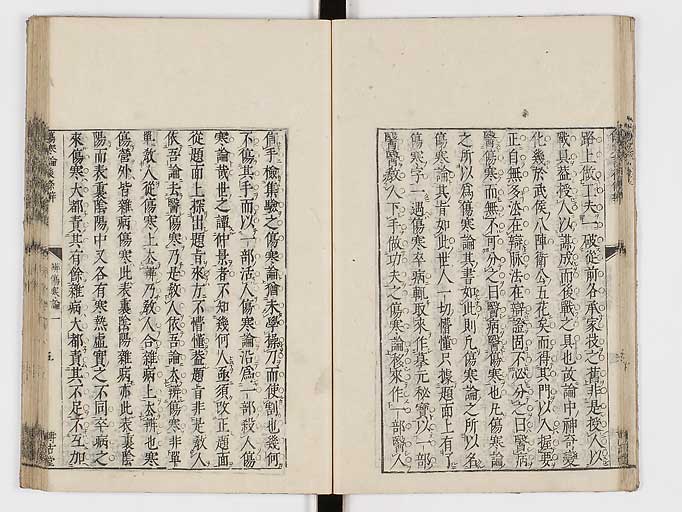 路上做工夫一破從前各承家技之舊非是授人以
戰具益授人以謀成而後戰之具也故論中神奇變
化幾於武侯八陣衛公五花矣而得其門以入握要
正自無多法在辯脉法在辯證固不訟分之曰醫病
醫傷寒而無不可分之曰醫病醫傷寒也凡傷寒論
之所以爲傷寒論其書如此則凡傷寒論之所以名
傷寒論其旨如此世人一切懵懂只據題面上有了
傷寒字一遇傷寒卒病輒取來作募元秘實以一部
醫醫敎人下手做功夫之傷寒論移來作一部醫人
手檢集驗之傷寒論猶未學操刀而使割也幾何
不傷其手而以一部活人傷寒論沿爲一部殺人傷
寒論哉世之譚仲景者不知幾何人亟須改正題面
從題面上探出題旨來方不懵懂葢題旨非是敎人
依吾論去醫傷寒乃是敎人依吾論去辨傷寒非單
單敎人從傷寒上去辨乃敎人合雜病上去辨也寒
傷營外皆雜病傷寒此表裏陰陽雜病亦此表裏陰
陽而表裏陰陽中又各有寒熱虛實之不同卒病之
來傷寒大都責其有餘雜病大都責其不足不互加
傷寒論後條辨
辨傷寒論一
五
耕古堂